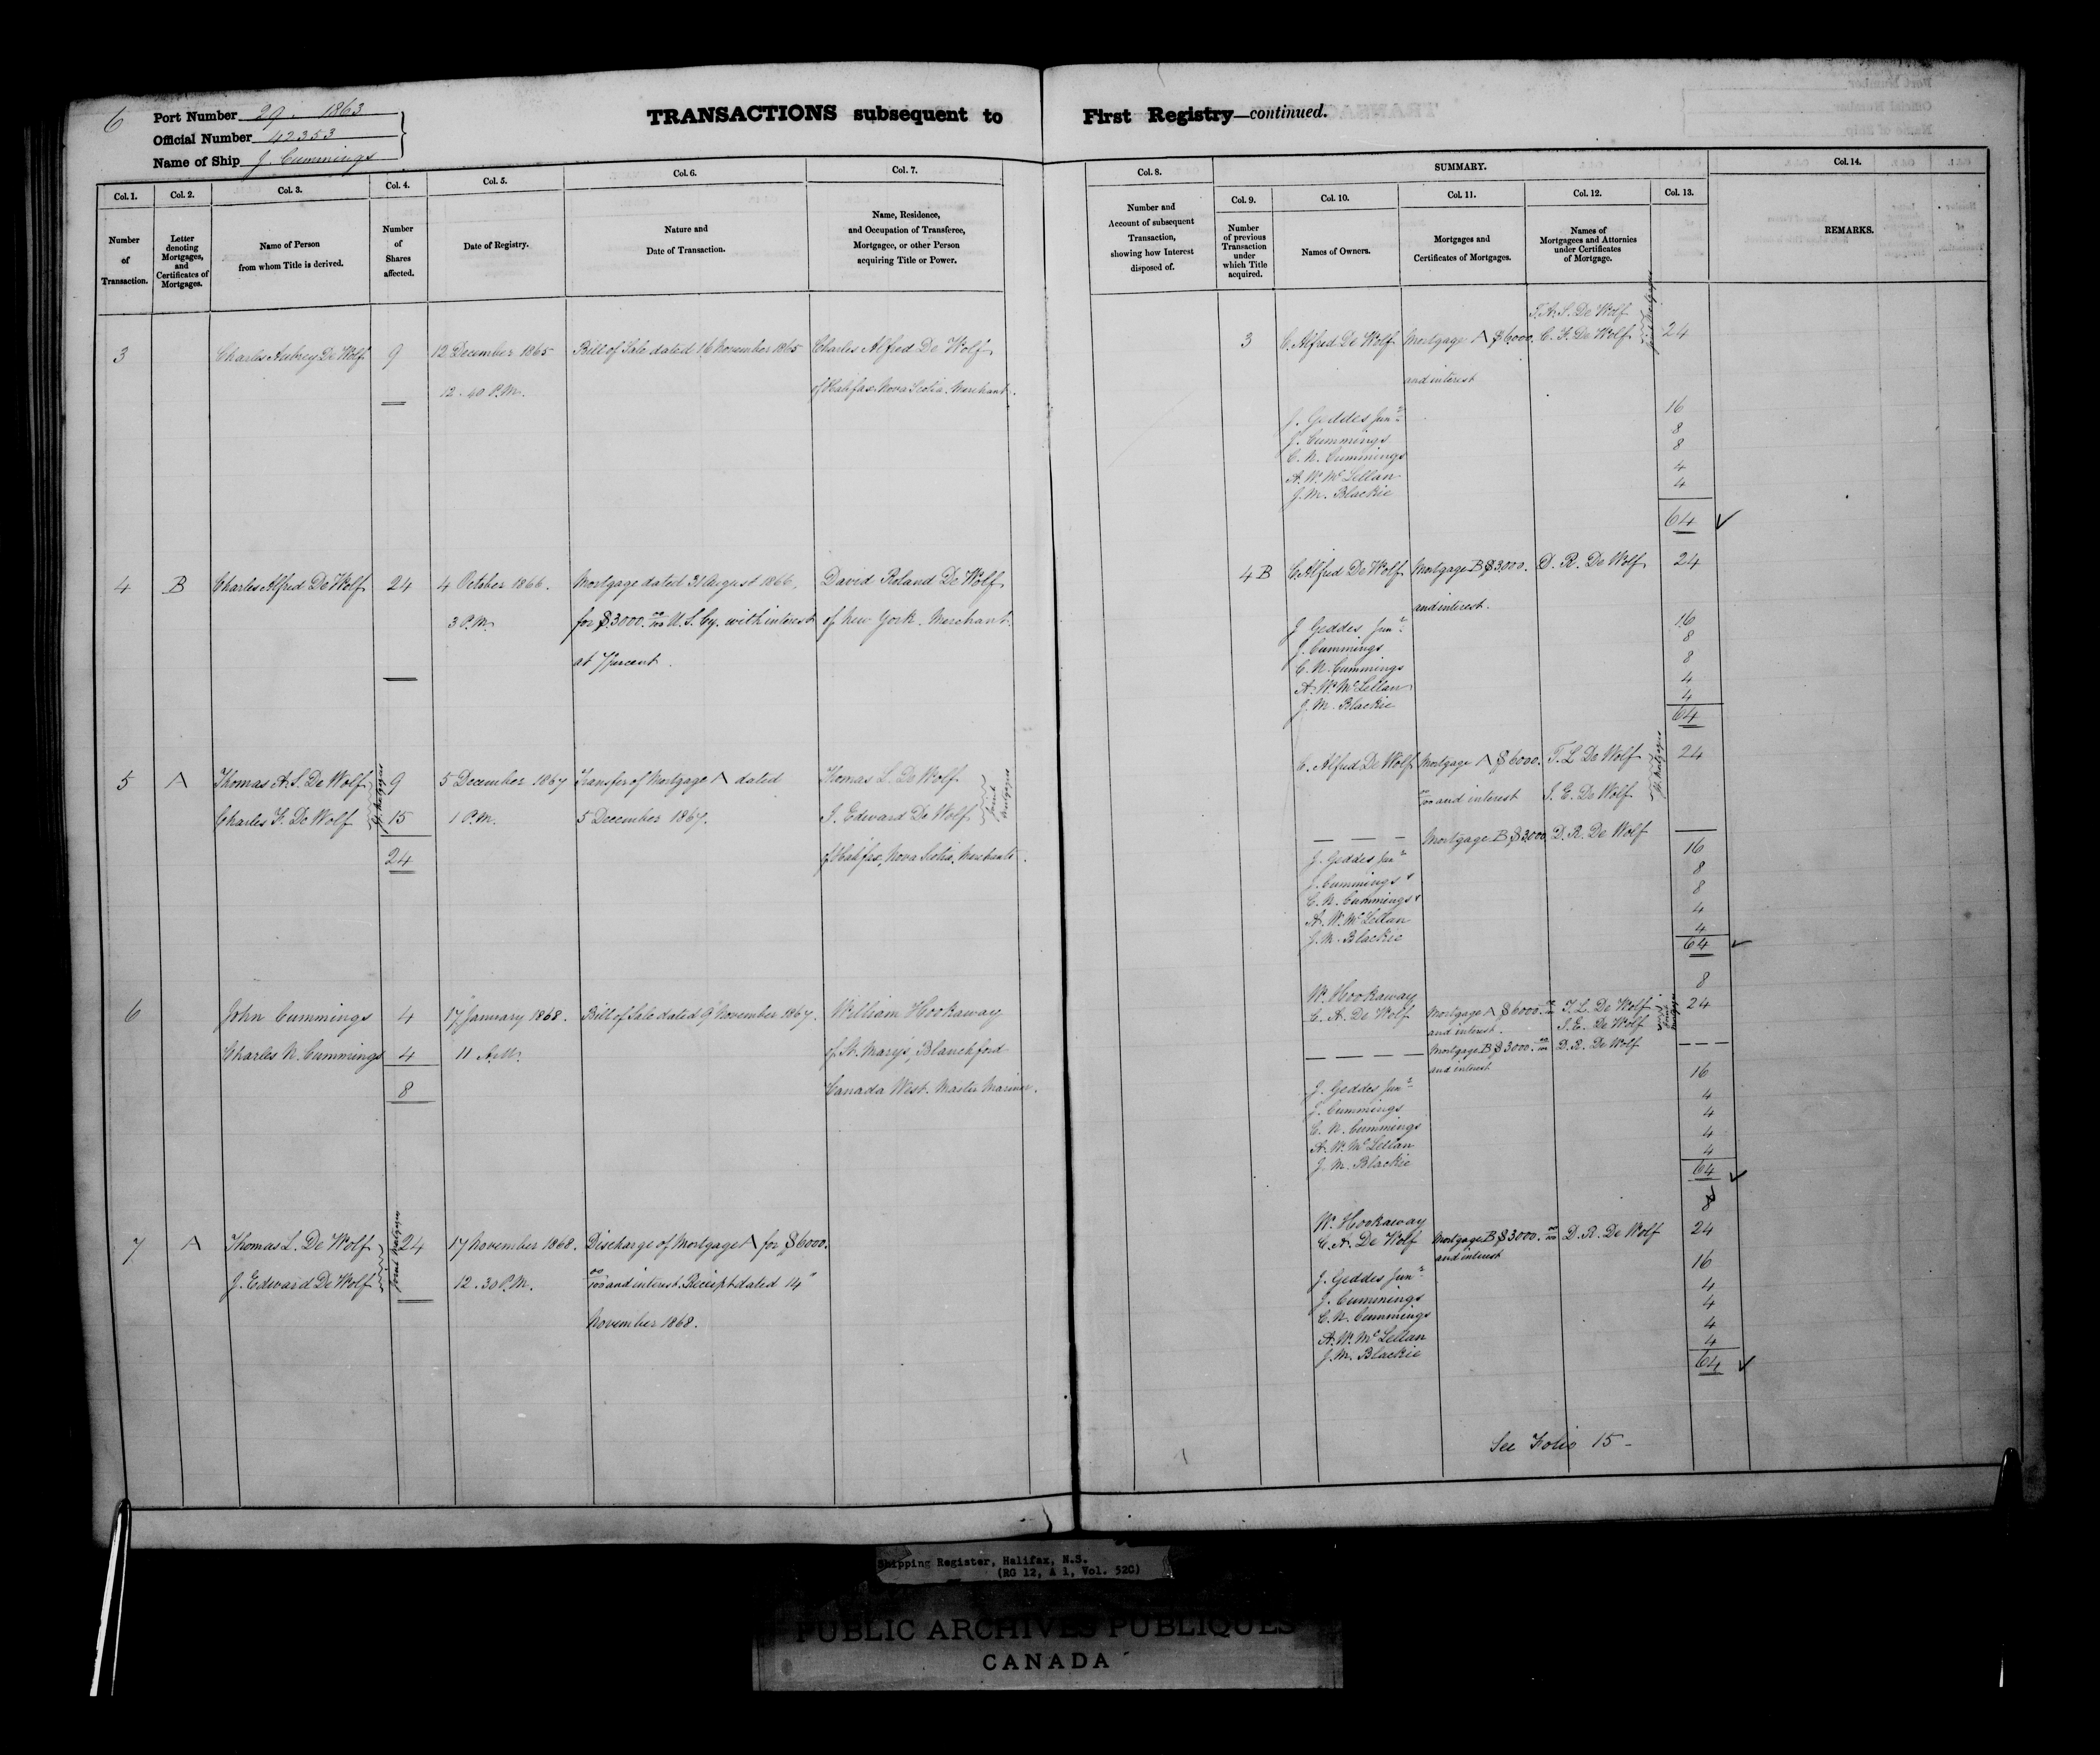 6
Port Number 29. 1863
Official Number 42353
Name of Ship J. Cummings
TRANSACTIONS subsequent to First Registry—continued.
Col. 1. Col. 2. Col. 3. Col. 4. Col. 5. Col. 6. Col. 7. Col. 8. SUMMARY. Col. 14.
Col. 9. Col. 10. Col. 11. Col. 12. Col. 13.
Number of Transaction.
Letter denoting Mortgages, and Certificates of Mortgages.
Name of Person from whom Title is derived.
Number of Shares affected.
Date of Registry.
Nature and Date of Transaction.
Name, Residence, and Occupation of Transferee, Mortgagee, or other Person acquiring Title or Power.
Number and Account of subsequent Transaction, showing how Interest disposed of.
Number of previous Transaction under which Title acquired.
Names of Owners.
Mortgages and Certificates of Mortgages.
Names of Mortgagees and Attornies under Certificates of Mortgage.
REMARKS.
3 Charles Aubrey De Wolf 9 12 December 1865 Bill of Sale dated 16 November 1865 Charles Alfred De Wolf
12.40 P.M. of Halifax Nova Scotia. Merchant.
T. A. S. De Wolf
3 C. Alfred De Wolf Mortgage A $6000. C. F. De Wolf Joint Mortgagees 24
and interest
J. Geddes Junr 16
J. Cummings 8
C. N. Cummings 8
A. W. McLellan 4
J. M. Blackie 4
64
4 B Charles Alfred De Wolf 24 4 October 1866. Mortgage dated 31 August 1866. David Roland De Wolf
3 P.M. for $3000. 00/100 U.S. Cy. with interest of New York. Merchant.
at 7 percent.
4 B C. Alfred De Wolf Mortgage B $3000. D. R. De Wolf 24
and interest.
J Geddes Junr 16
J. Cummings 8
C. N. Cummings 8
A. W. McLellan 4
J. M. Blackie 4
64
5 A Thomas A. S. De Wolf 9 5 December 1867 Transfer of Mortgage A dated Thomas L. De Wolf
Charles F. De Wolf Jt. Mortgagees 15 1 P.M. 5 December 1867. J. Edward De Wolf Joint Mortgagees
24 of Halifax, Nova Scotia, Merchants.
C. Alfred De Wolf Mortgage A $6000. T. L De Wolf 24
00/100 and interest J. E. De Wolf Jt. Mortgagees
— — — Mortgage B $3000 D. R. De Wolf —
J. Geddes Junr 16
J. Cummings 8
C. N. Cummings 8
A. W. McLellan 4
J. M. Blackie 4
64
6 John Cummings 4 17 January 1868. Bill of Sale dated 9 November 1867. William Hookaway
Charles N. Cummings 4 11 A.M. of St. Mary's, Blanchford
8 Canada West. Master Mariner.
W. Hookaway 8
C. A. De Wolf Mortgage A $6000. 00/100 T. L. De Wolf 24
and interest. J. E. De Wolf Joint Mortgagees
— — — — Mortgage B $3000. 00/100 D. R. De Wolf — —
and interest
J. Geddes Junr 16
J. Cummings 4
C. N. Cummings 4
A. W. McLellan 4
J. M. Blackie 4
64
7 A Thomas L. De Wolf 24 17 November 1868. Discharge of Mortgage A for $6000.
J. Edward De Wolf Joint Mortgagees 12.30 P.M. 00/100 and interest. Receipt dated 14"
November 1868.
W. Hookaway 8
C. A. De Wolf Mortgage B $3000. 00/100 D. R. De Wolf 24
and interest
J. Geddes Junr 16
J. Cummings 4
C. N. Cummings 4
A. W. McLellan 4
J. M. Blackie 4
64
See Folio 15-
Shipping Register, Halifax, N.S.
(RG 12, A 1, Vol. 520)
PUBLIC ARCHIVES PUBLIQUES
CANADA